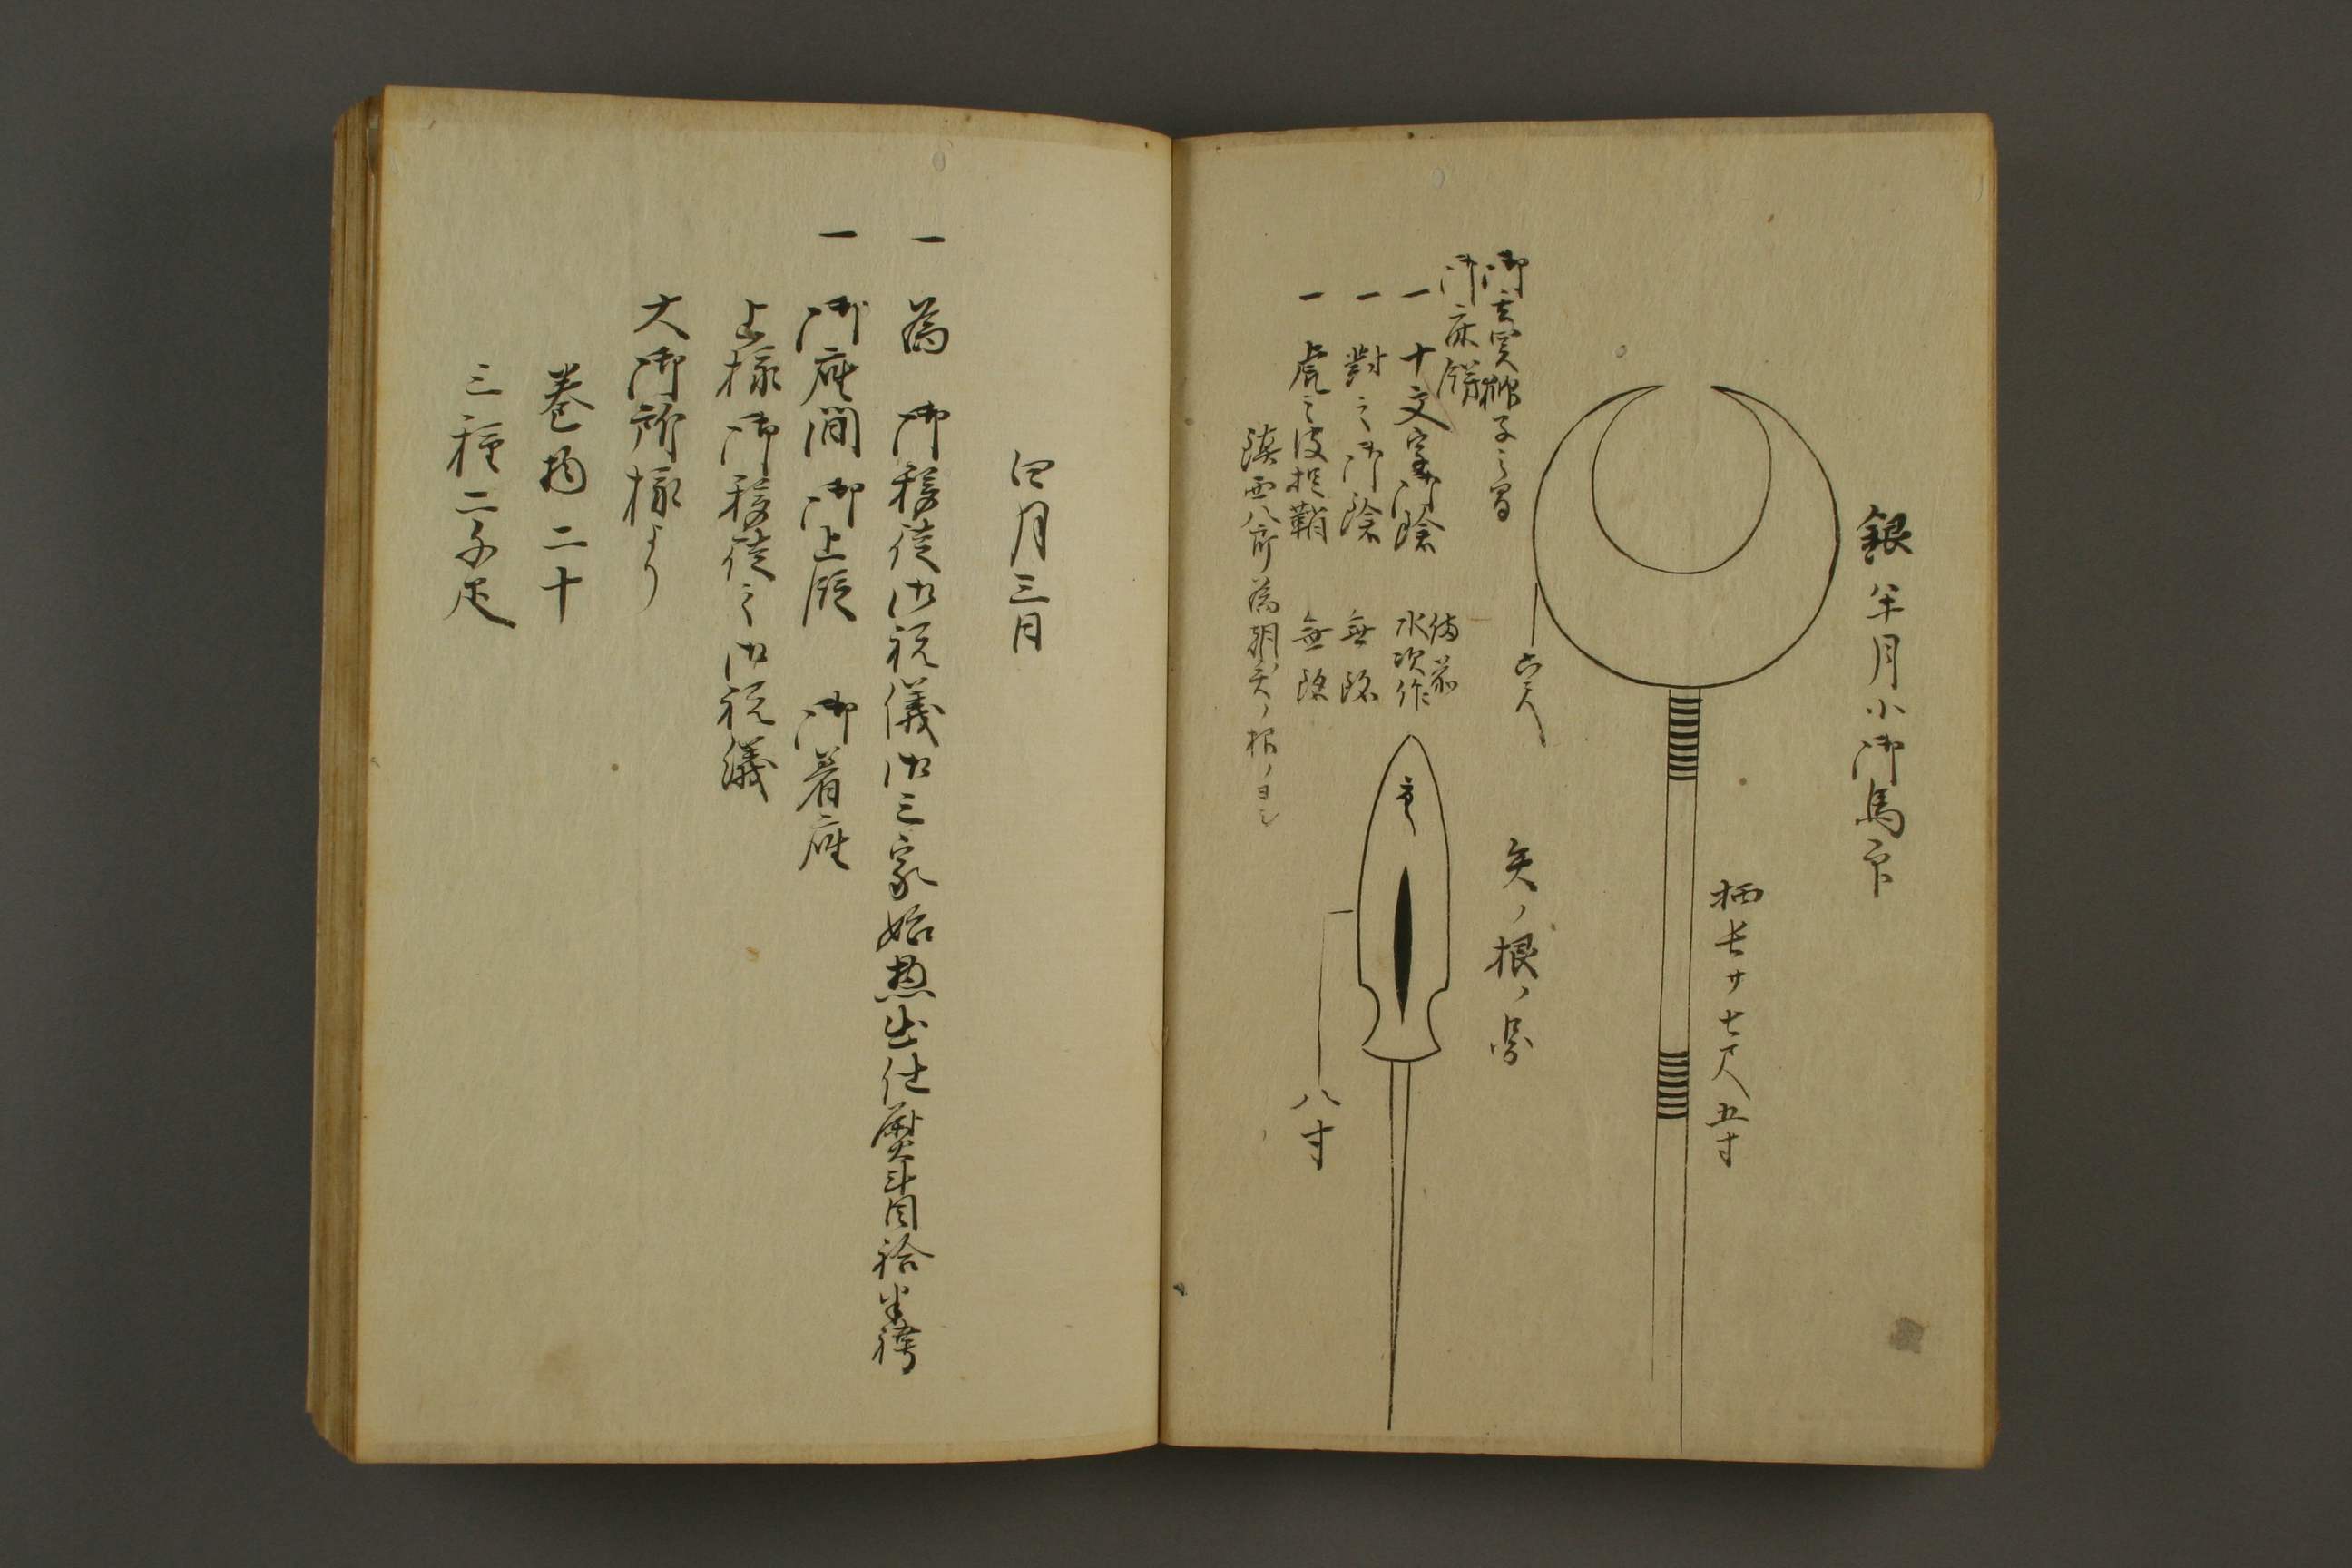 銀半月小御馬印
柄長サ七尺五寸
矢ノ根ノ図
御玄実獅子之間
御床餝
一 十文字御鎗 備前
水次作
一 對之御鎗 無銘
一 虎之皮抛鞘 無銘
鎮西八郎為朝矢ノ根ノヨシ
八寸
四月三日
一 為 御移徙御祝儀御三家始惣出仕熨斗目袷半袴
一 御座間御上段 御着座
上様御移徙之御祝儀
大御所様より
巻物二十
三種二千疋